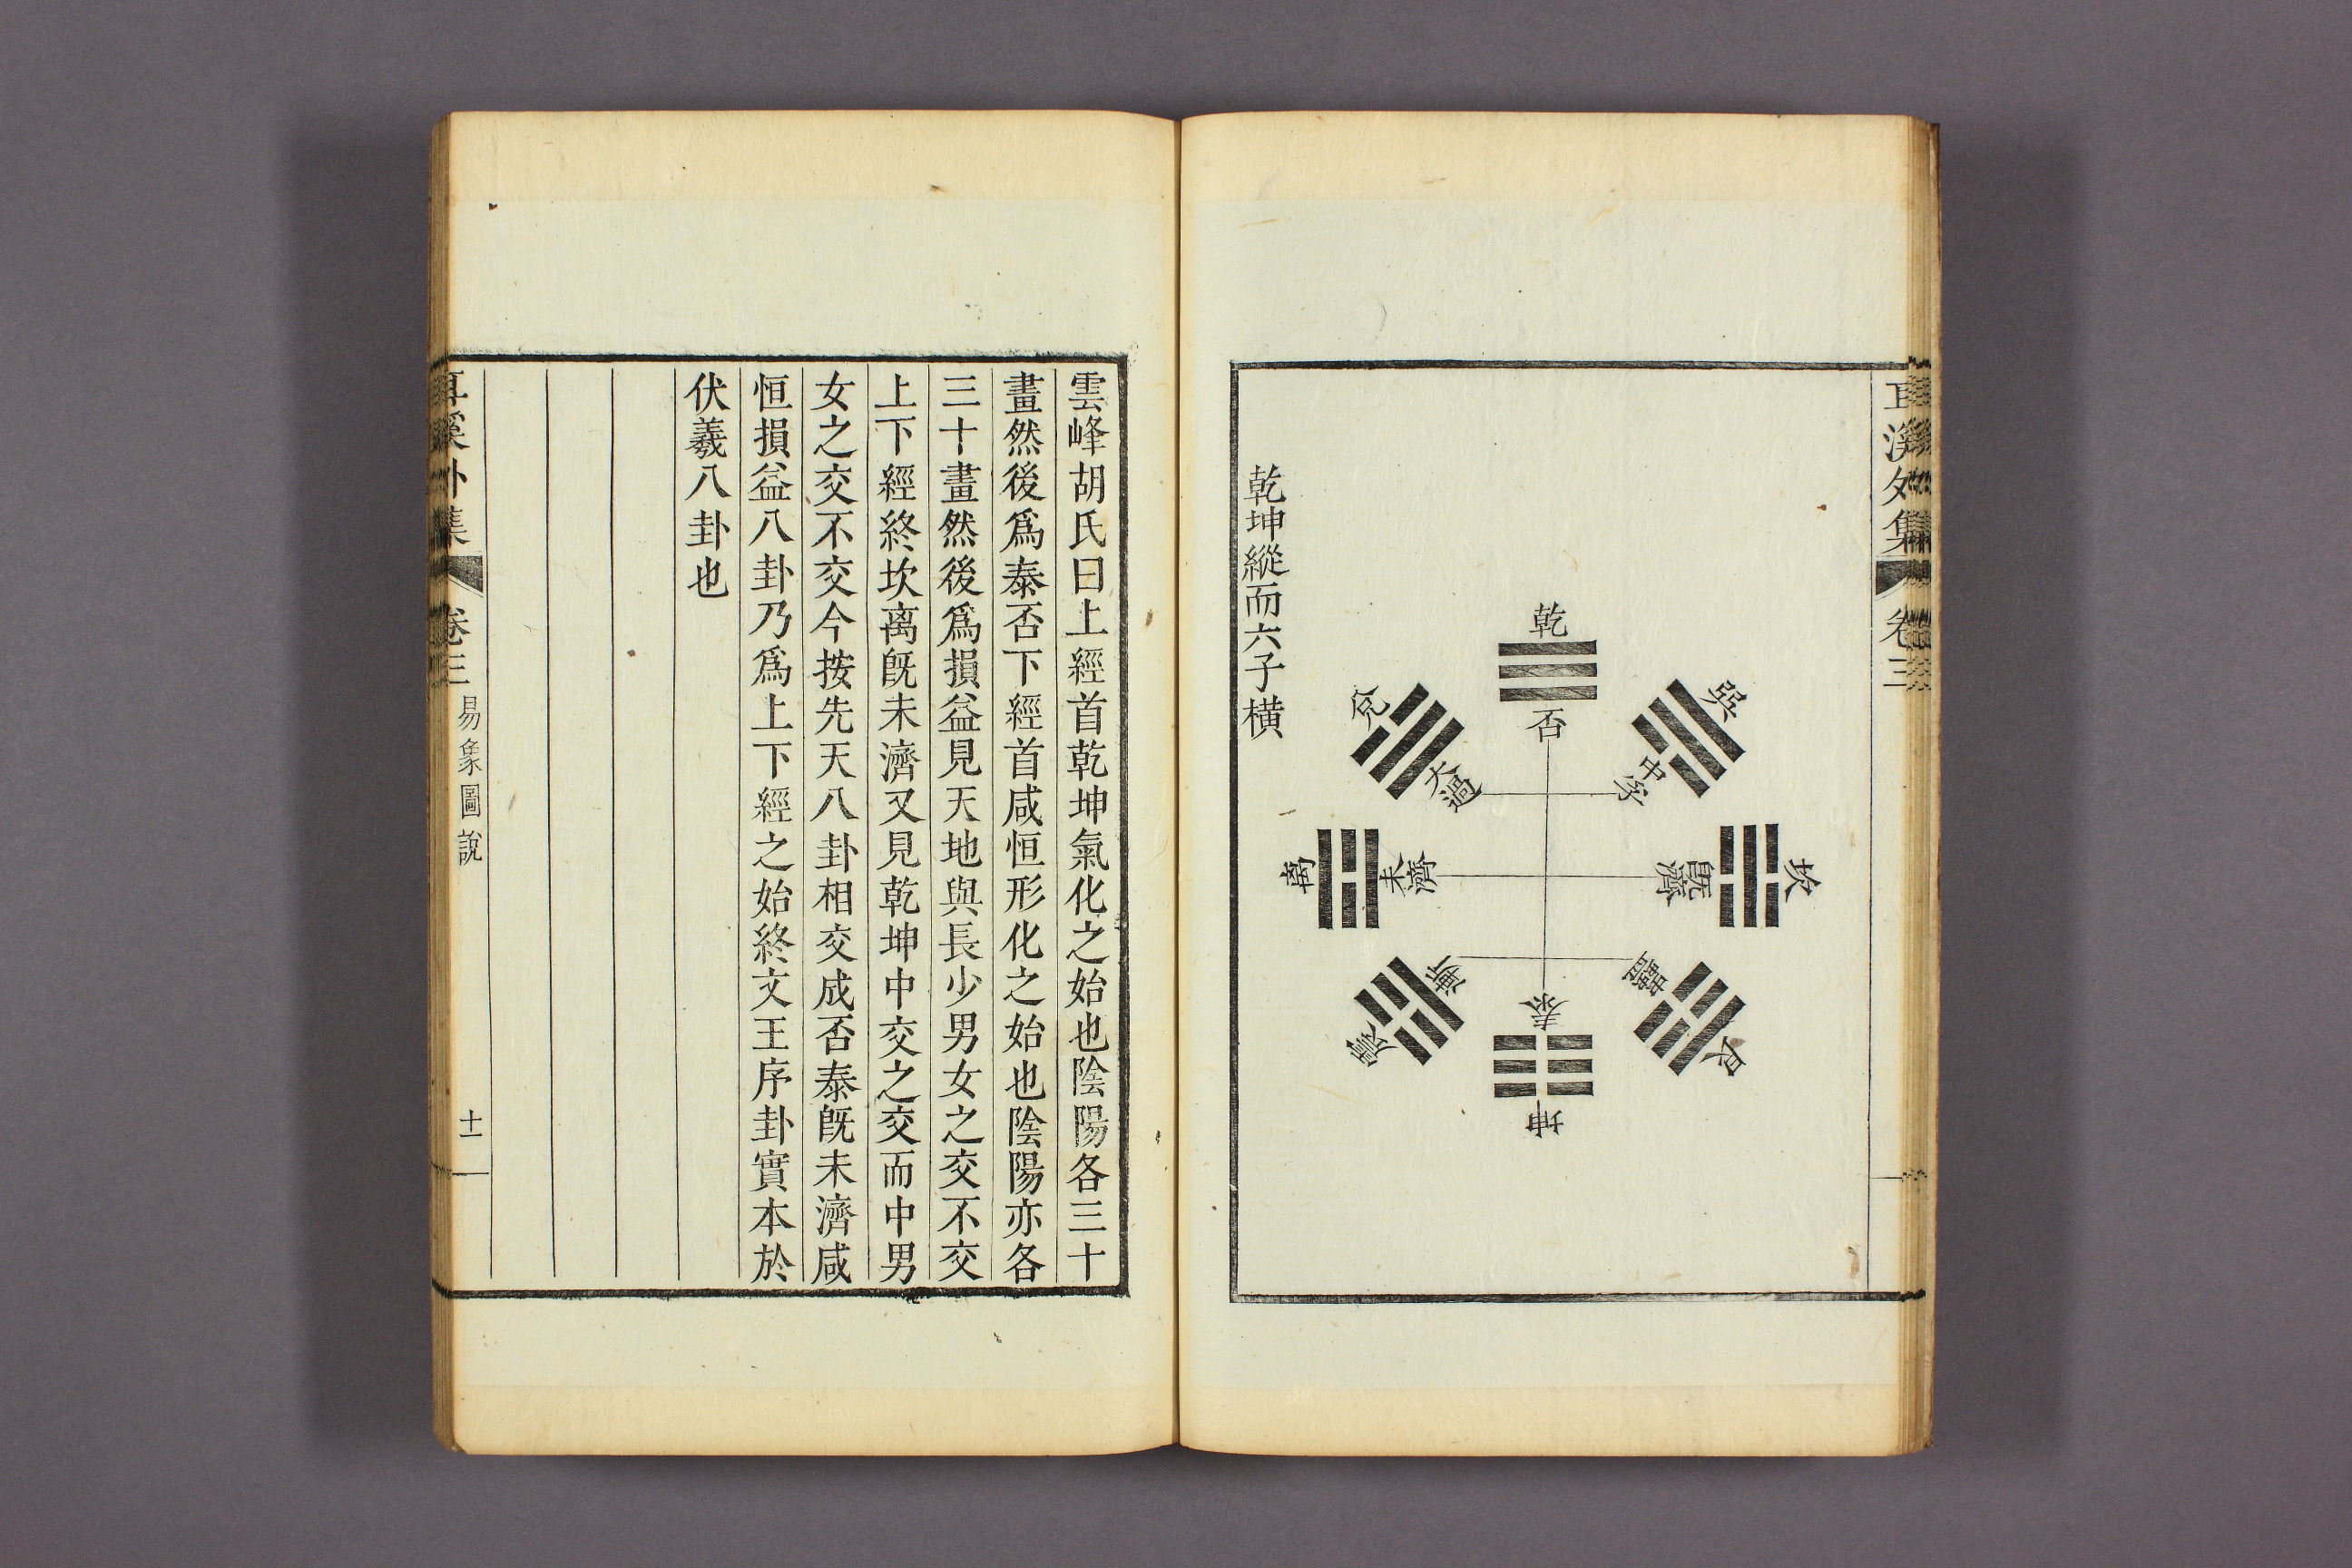 耳溪外集 卷三
乾
否
兌
大過
巽
中孚
离
未濟
坎
旣濟
震
漸
艮
蠱
泰
坤
乾坤縱而六子橫
雲峰胡氏曰上經首乾坤氣化之始也陰陽各三十
畫然後爲泰否下經首咸恒形化之始也陰陽亦各
三十畫然後爲損益見天地與長少男女之交不交
上下經終坎离旣未濟又見乾坤中交之交而中男
女之交不交今按先天八卦相交成否泰旣未濟咸
恒損益八卦乃爲上下經之始終文王序卦實本於
伏羲八卦也
耳溪外集 卷三 易象圖說 十一